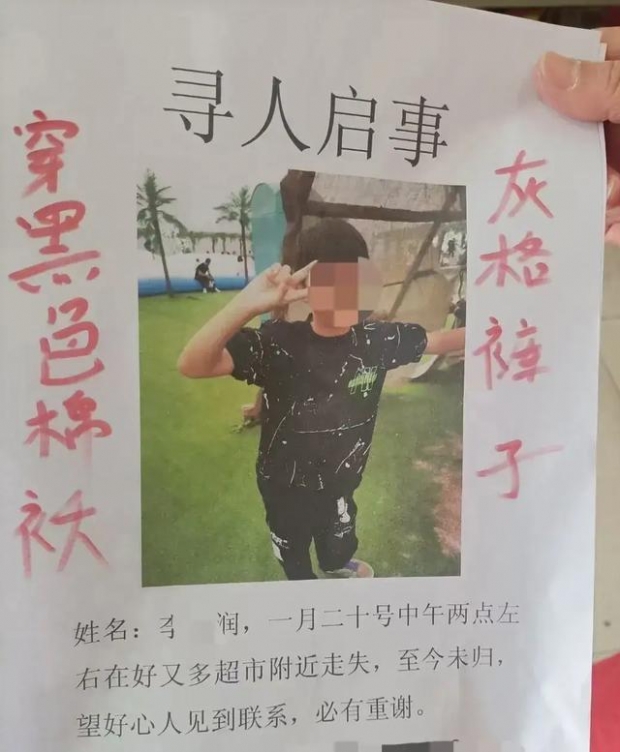 寻人启事
穿黑色棉袄
灰格裤子
姓名：李 润，一月二十号中午两点左
右在好又多超市附近走失，至今未归，
望好心人见到联系，必有重谢。